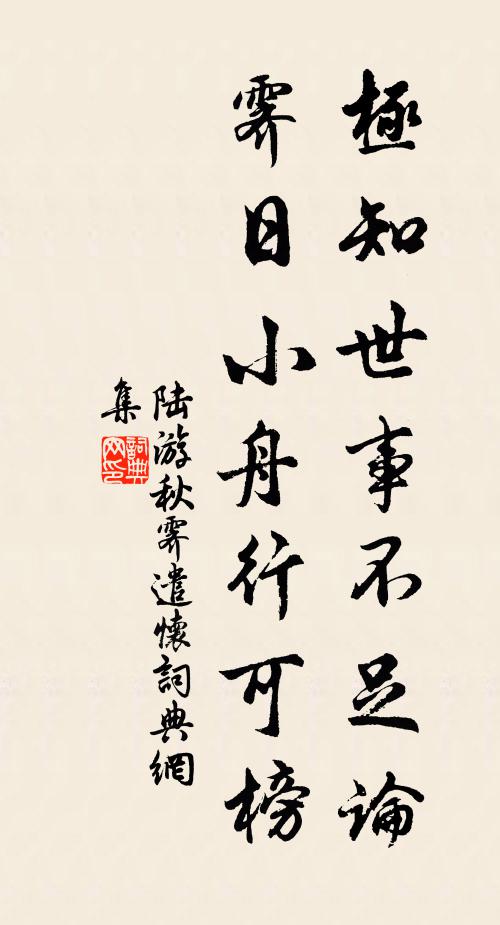 極知世事不足論
霽日小舟行可榜
陆游秋霽遣懷詞典網
集
詞典
网印